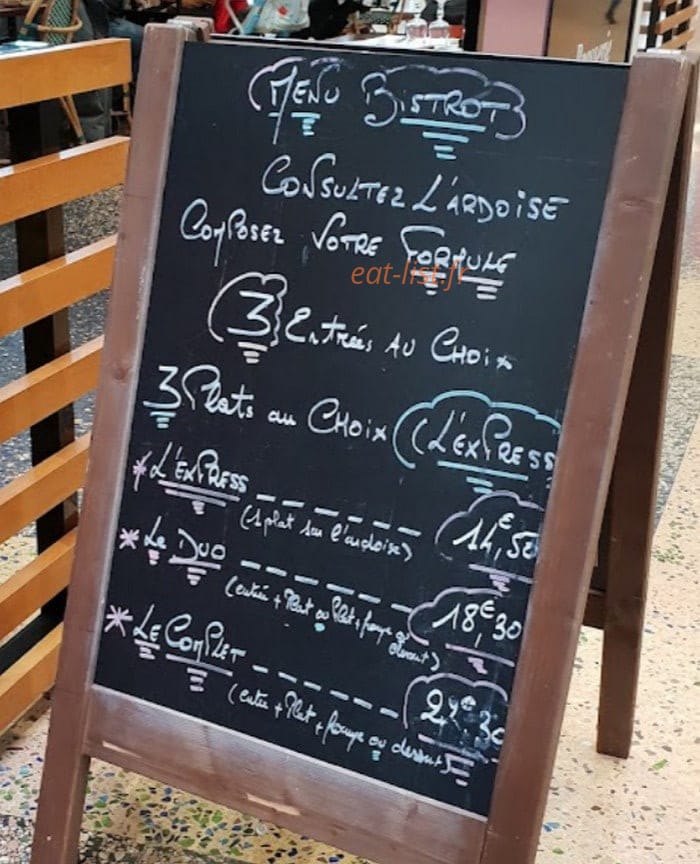 MENU BISTROT
CONSULTEZ L'ARDOISE
COMPOSEZ VOTRE FORMULE
eat-list.fr
3 Entrées AU CHOIX
3 Plats au CHOIX (L'EXPRESS
* L'EXPRESS
(1 plat sur l'ardoise)
14,50
* Le DUO
(entrée + Plat ou Plat + fromage ou dessert)
18€,30
* LE COMPLET
(entrée + Plat + fromage ou dessert)